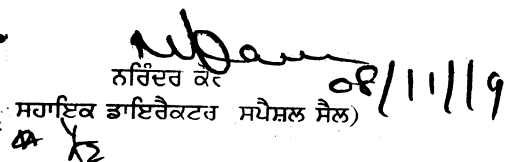 ਨਰਿੰਦਰ ਕੌਰ 08/11/19
ਸਹਾਇਕ ਡਾਇਰੈਕਟਰ ਸਪੈਸ਼ਲ ਸੈਲ)